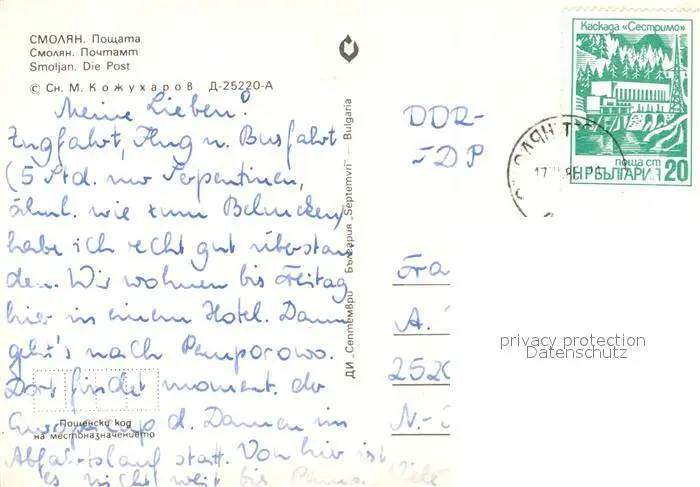 СМОЛЯН. Пощата
Смолян. Почтамт
Smoljan. Die Post
© Сн. М. Кожухаров Д-25220-А
Meine Lieben!
Zugfahrt, Flug u. Busfahrt
(5 Std. nur Serpentinen,
ähnl. wie zum
habe ich recht gut überstan
den. Wir wohnen bis Freitag
hier in einem Hotel. Dann
geht's nach Pamporowo.
Dort findet moment. der
Europacup d. Damen im
Abfahrtslauf statt. Von hier ist
es nicht weit bis Pamp. Viele
Пощенски код
на местоназначението
ДИ „Септември" България „Septemvri" — Bulgaria
DDR-
TDP
Fra
A.
2520
N.-
Каскада «Сестримо»
поща ст
НР БЪЛГАРИЯ 20
privacy protection
Datenschutz